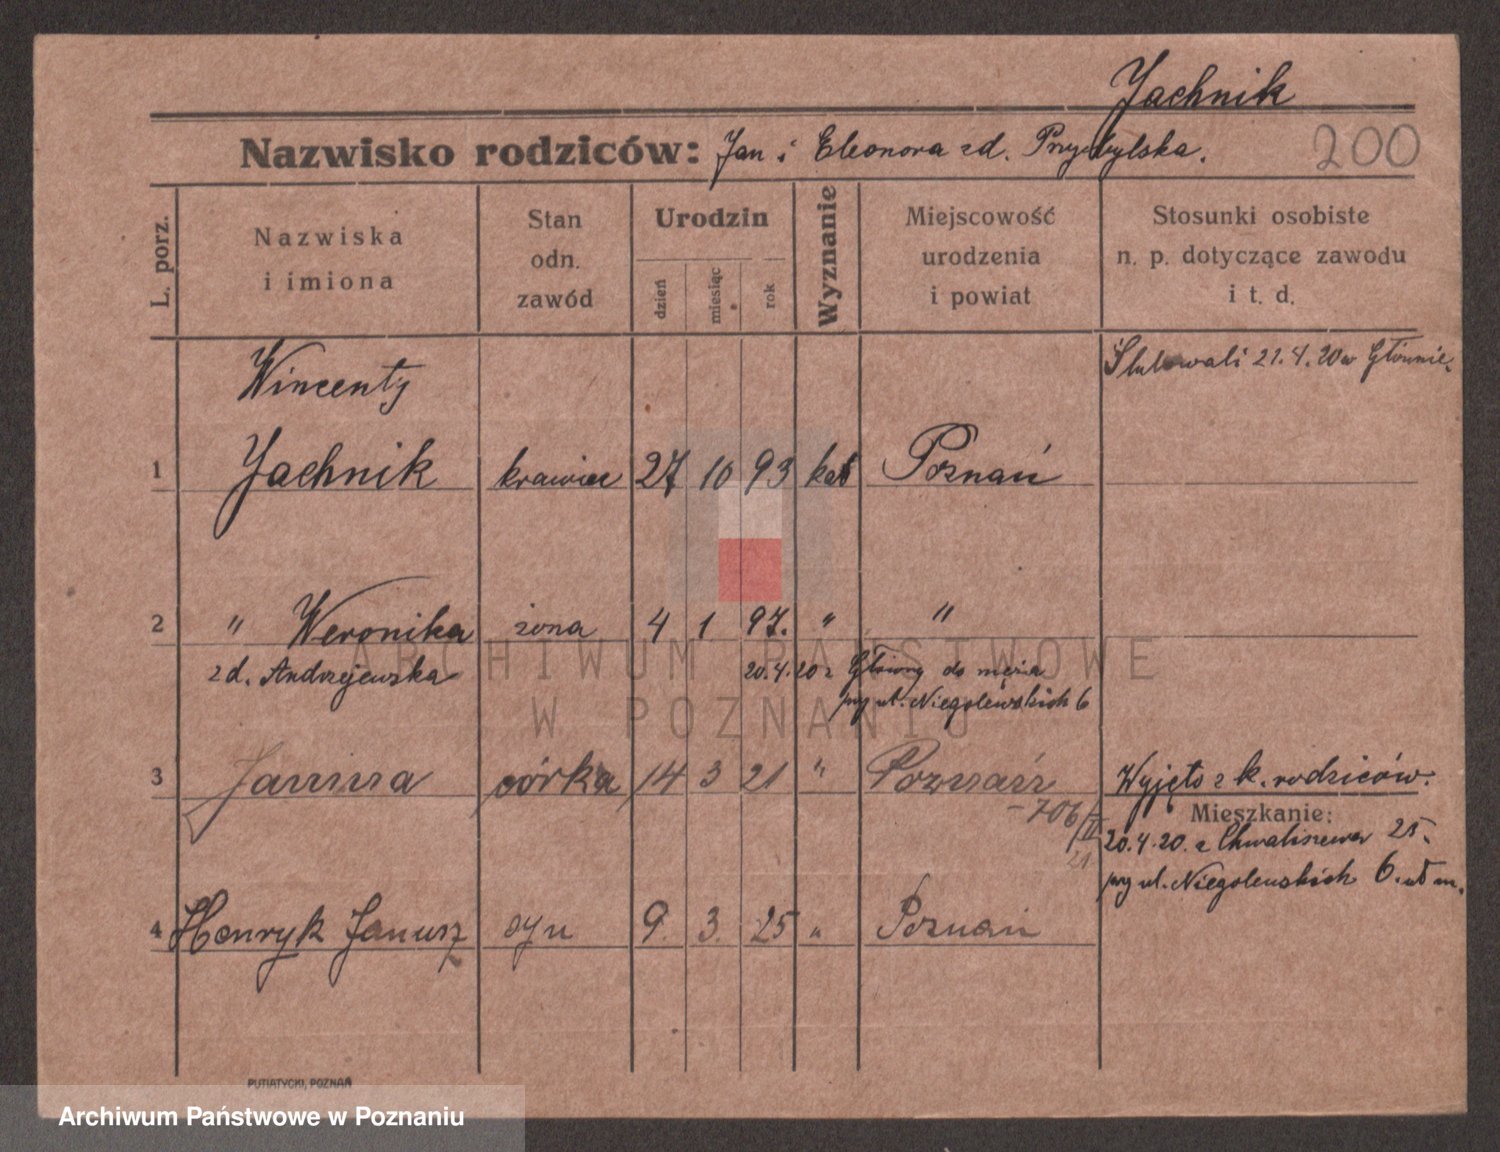 Jachnik
Nazwisko rodziców: Jan i Eleonora zd. Przybylska.
200
L. porz.
Nazwiska
i imiona
Stan
odn.
zawód
Urodzin
dzień
miesiąc
rok
Wyznanie
Miejscowość
urodzenia
i powiat
Stosunki osobiste
n. p. dotyczące zawodu
i t. d.
Ślubowali 21.4.20 w Głównie.
Wincenty
1 Jachnik krawiec 27 10 93 kat Poznań
2 " Weronika żona 4 1 97. " "
zd. Andrzejewska 20.4.20 z Główny do męża
przy ul. Niegolewskich 6
3 Janina córka 14 3 21 " Poznań Wyjęto z k. rodziców.
- 706/II
21
Mieszkanie:
20.4.20. z Chwaliszewa 25.
przy ul. Niegolewskich 6.
4 Henryk Janusz syn 9. 3. 25 " Poznań
PUTIATYCKI, POZNAŃ
ARCHIWUM PAŃSTWOWE
W POZNANIU
Archiwum Państwowe w Poznaniu